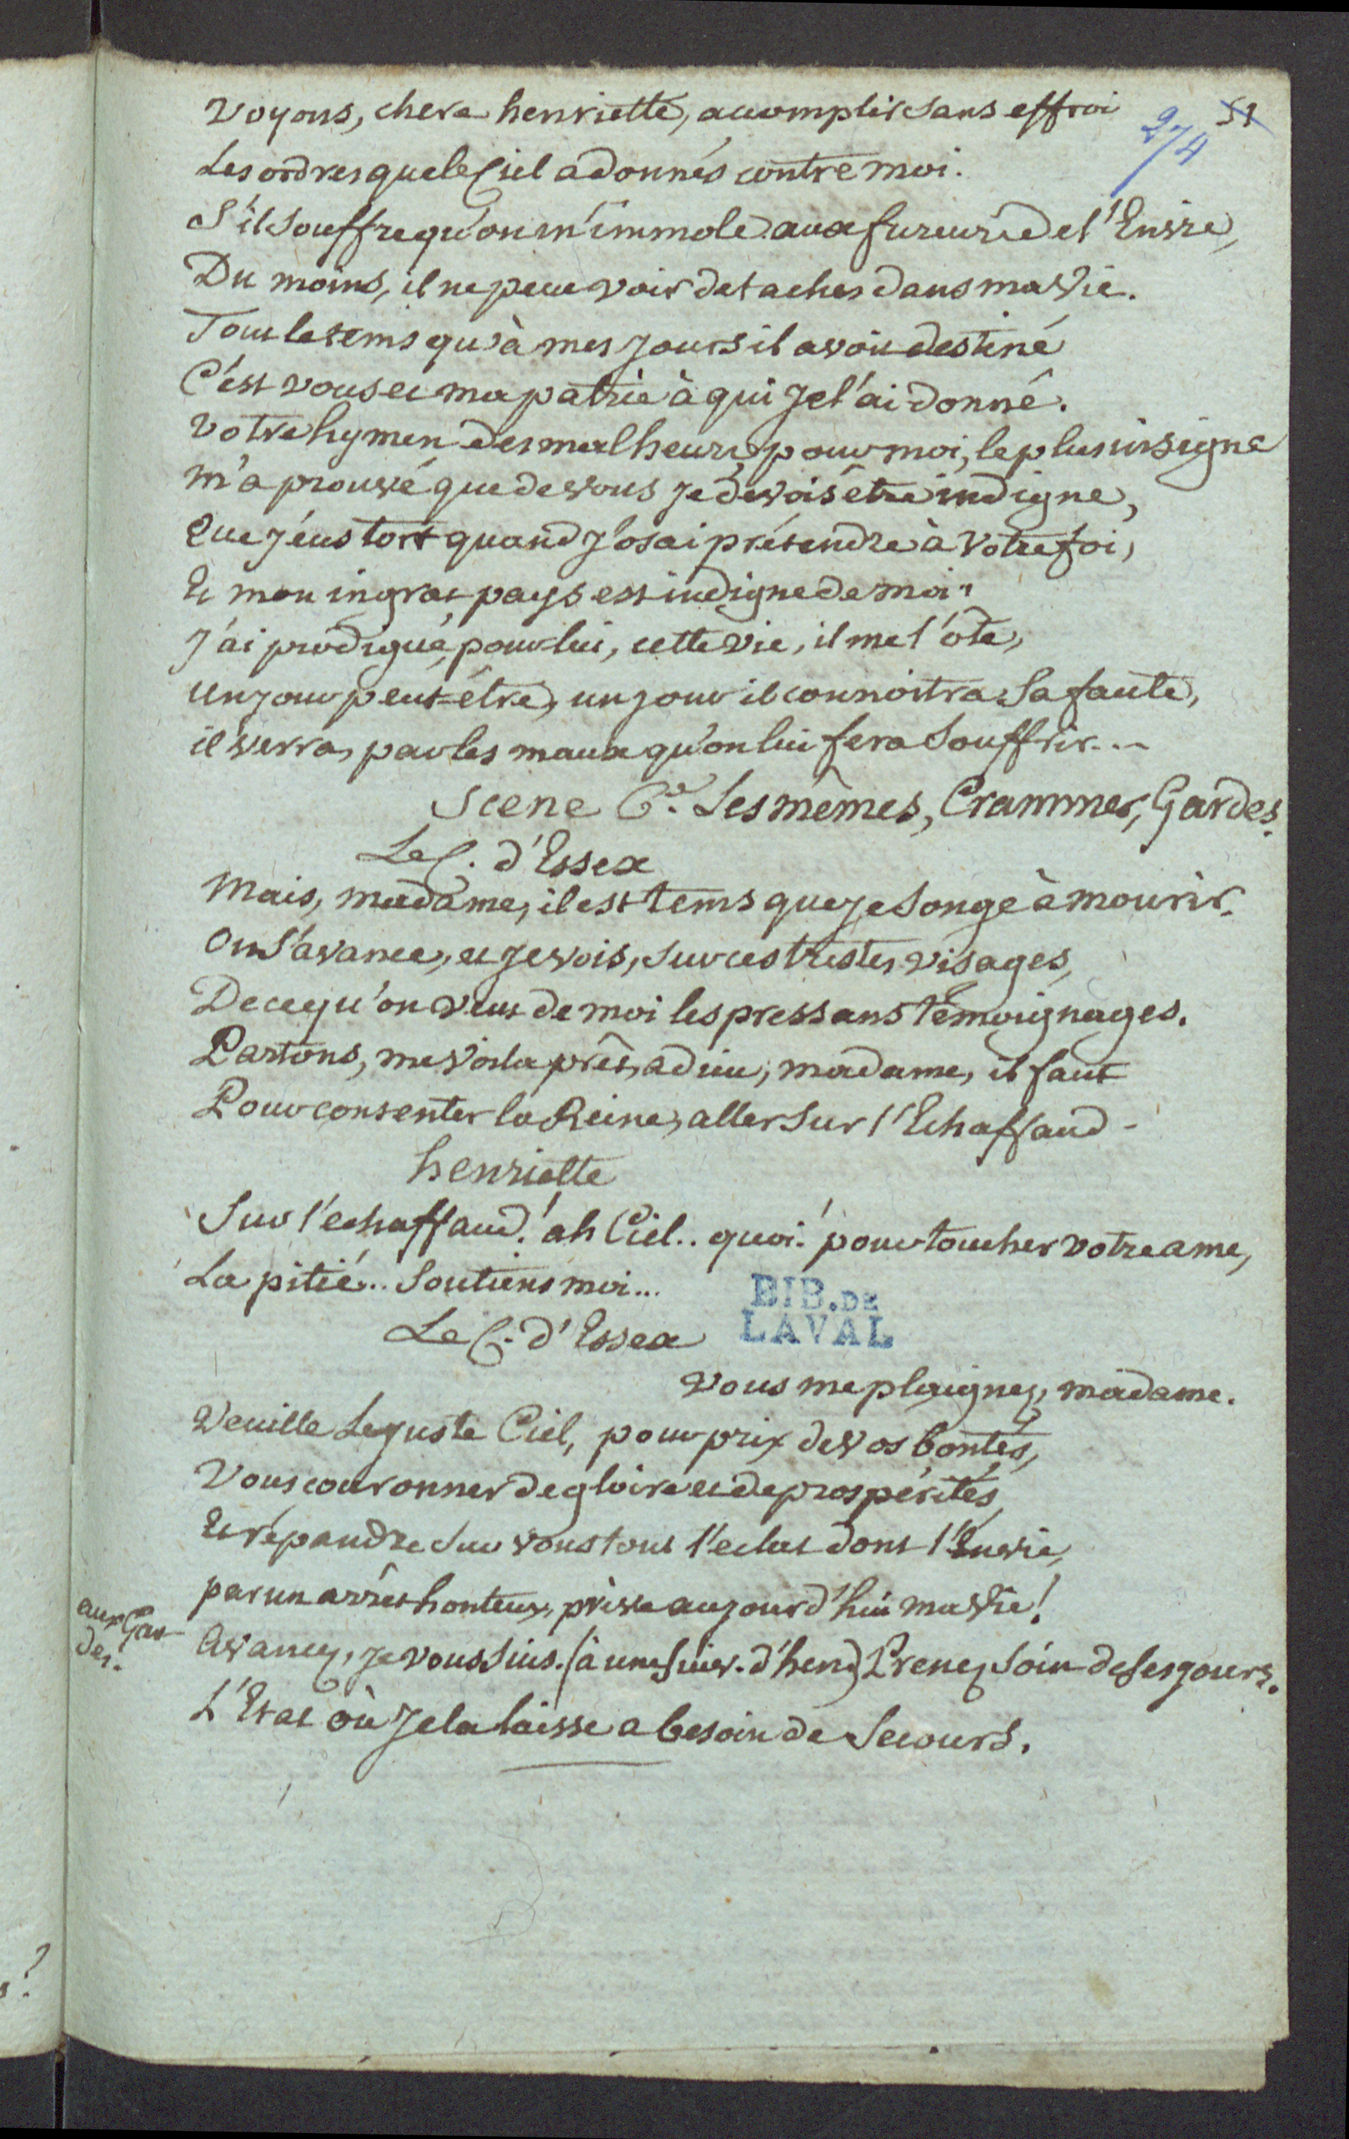 51
274
Voyons, chere henriette, accomplir sans effroi
Les ordres que le Ciel a donnés contre moi.
S'il souffre qu'on m'immole aux fureurs de l'Envie,
Du moins, il ne peut voir de taches dans ma vie.
Tout le tems qu'à mes jours il avoit destiné
C'est vous et ma patrie à qui Je l'ai donné.
Votre hymen des malheurs, pour moi, le plus insigne
m'a prouvé que de vous Je devois être indigne,
Que J'eus tort quand J'osai prétendre à Votre foi,
Et mon ingrat pays est indigne de moi.
J'ai prodigué, pour lui, cette vie, il me l'ôte,
Un jour peut-être, un jour il connoitra sa faute,
il verra, par les maux qu'on lui fera souffrir...
Scene 6e. Les mêmes, Crammer, Gardes.
Le C. d'Essex
Mais, madame, il est tems que Je songe à mourir.
On s'avance, et Je vois, sur ces tristes visages,
De ce qu'on veut de moi les pressans témoignages.
Partons, me voila prêt, adieu, madame, il faut
Pour contenter la Reine, aller sur l'Echaffaud.
henriette
Sur l'echaffaud! ah Ciel.. quoi! pour toucher votre ame,
La pitié.. Soutiens moi...
Le C. d'Essex
BIB. DE
LAVAL
Vous me plaignez, madame.
Veuille Le juste Ciel, pour prix de vos bontés,
Vous couronner de gloire et de prospérités,
Et répandre sur vous tout l'eclat dont l'Envie,
par un arrêt honteux, prive aujourd'hui ma vie!
aux Gar-
des.
Avancez, Je vous suis. (à une suiv. d'hen.) Prenez soin de ses jours.
L'Etat où Je la laisse a besoin de Secours.